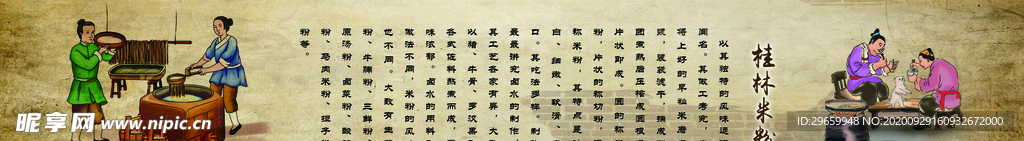 桂林米粉
以其独特的风味远
闻名。其做工考究,
将上好的早籼米磨
浆,装袋滤干,揣成
团煮熟后压榨成圆根
片状即成。圆的称
粉,片状的称切粉,
称米粉,其特点是
白、细嫩、软滑、
口。其吃法多样。制
最最讲究卤水的制作
其工艺各家有异,大
以猪、牛骨、罗汉果
各式佐料熬煮而成,
味浓郁。卤水的用料
做法不同,米粉的风
也不同。大致有生
粉、牛腩粉、三鲜粉
原汤粉、卤菜粉、酸
粉、马肉米粉、担子
粉等。
昵享网 www.nipic.cn
ID:29659948 NO:20200929160932672000